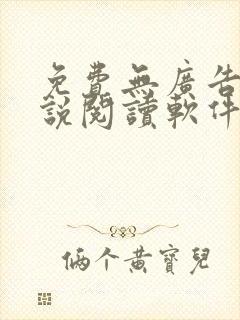 免費無廣告
說閱讀軟件
俩个黄寶兒